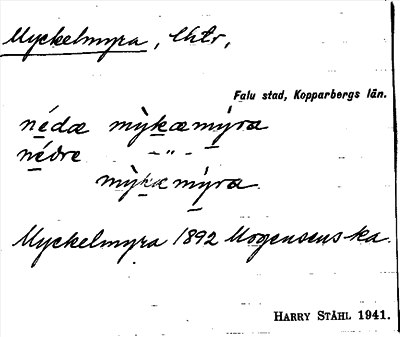 Myckelmyra,
Falu stad, Kopparbergs län.
nédæ mỳkæmýra
nédre -"-
mỳkæmýra
Myckelmyra 1892 Mogensens ka.
HARRY STÅHL 1941.